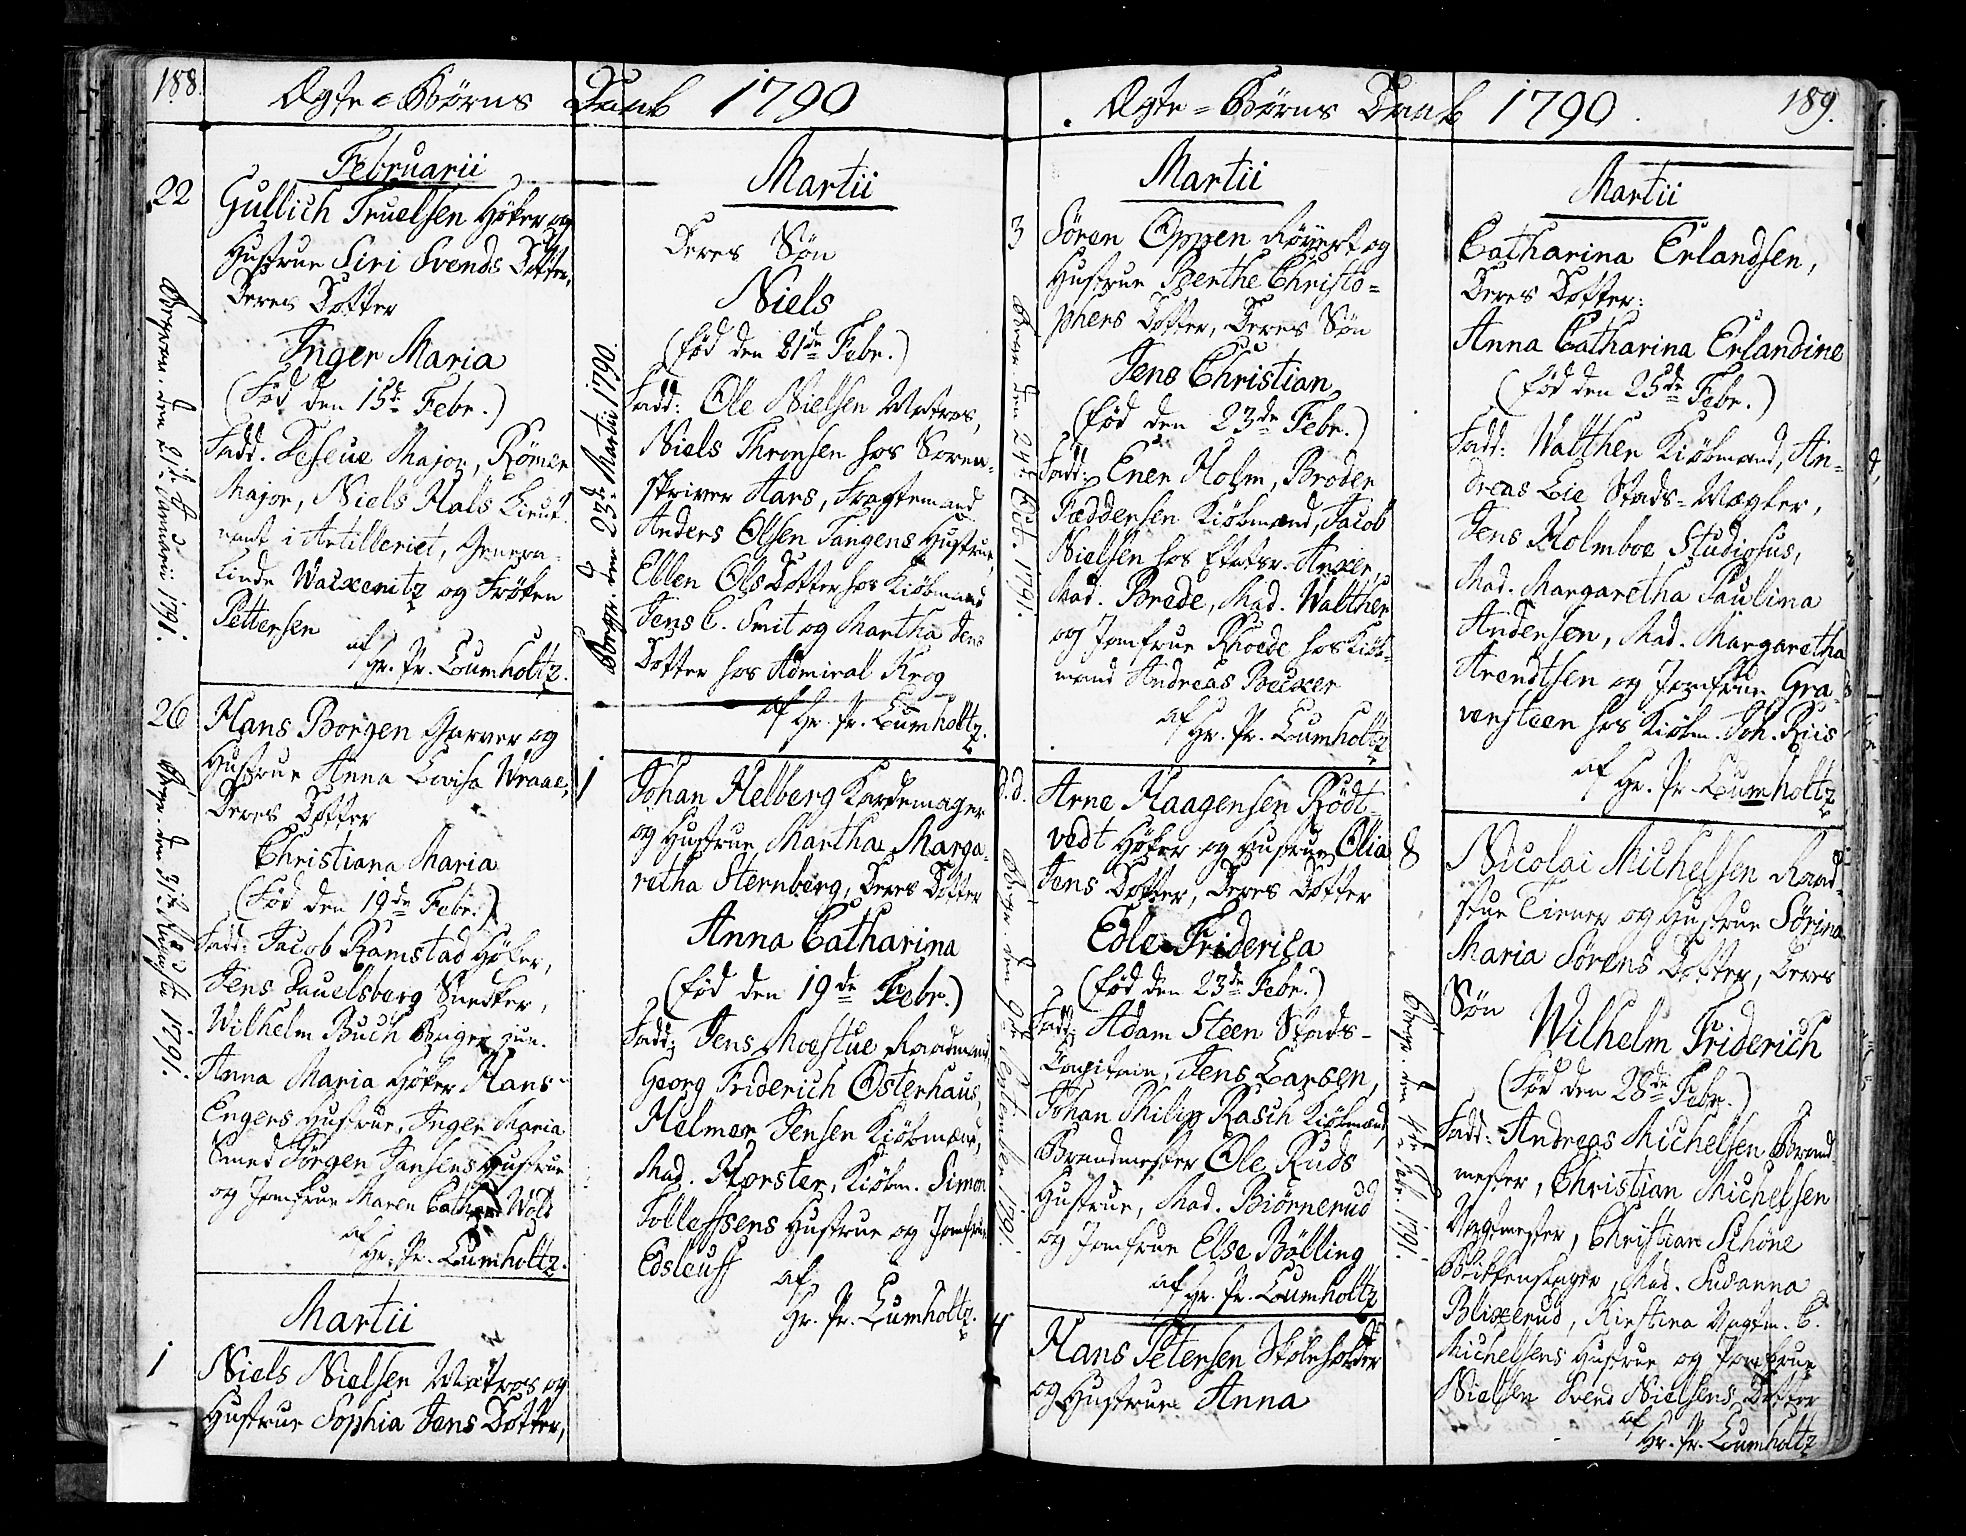 188.
Ægte-Børns Daab 1790
Februarii
22
Gullich Truelsen Höker og
Hustrue Siri Svends Dotter,
Deres Dotter
Inger Maria
(Föd den 15de Febr.)
Fadd. Major, Römer
Major, Niels Hals Lieut-
nant i Artilleriet, Genera-
linde Wackenitz og Fröken
Pettersen
af
Hr. Pr. Lumholtz.
26
Hans Borgen Garver og
Hustrue Anna Lovisa Wraae,
Deres Dotter
Christiana Maria
(Föd den 19de Febr.)
Fadd: Jacob Ramstad Höker,
Jens Pauelsberg Snedker,
Wilhelm Buch Bager jun.
Anna Maria Höker Hans
Engers Hustrue, Inger Maria
Smed Jörgen Jansens Hustrue
og Jomfrue Maren Cathar. Wold
af
Hr. Pr. Lumholtz.
Martii
1
Niels Nielsen Matros og
Hustrue Sophia Jens Dotter,
Begrav. den Januarii 1791.
Begr. den Augusti 1791.
Martii
Deres Søn
Niels
(föd den 21de Febr.)
Fadd: Ole Nielsen Matros,
Niels Thronsen hos Soren-
skriver Aars, Fragtemand
Anders Olsen Tangens Hustrue,
Ellen Ols Dotter hos Kiöbmand
Jens C. Smit og Martha Jens
Dotter hos Admiral Krog
af Hr. Pr. Lumholtz.
Begr. den 23de Martii 1790.
1
Johan Helberg Kardemager
og Hustrue Martha Marga-
retha Sternberg, Deres Dotter
Anna Catharina
(föd den 19de Febr.)
Fadd: Jens Moestue Raadmand,
Georg Friderich Osterhaus,
Helmer Jensen Kiöbmænd,
Mad. Horster, Kiöbm. Simon
Tollefsens Hustrue og Jomfrue
af
Hr. Pr. Lumholtz.
Ægte-Børns Daab 1790.
189.
Martii
3
Sören Oppen Röyert og
Hustrue Berthe Christo-
phers Dotter, Deres Søn
Jens Christian
(föd den 23de Febr.)
Fadd: Ener Holm, Broder
Fæddersen Kiöbmænd, Jacob
Nielsen hos Etatsr. Anker,
Mad. Brede, Mad. Walther
og Jomfrue Rhoede hos Kiöb-
mand Andreas Becker
af
Hr. Pr. Lumholtz
Begr. den 24de Oct. 1791.
d.d.
Arne Haagensen Rödt-
vedt Höker og Hustrue Olia
Jens Dotter, Deres Dotter
Edle Friderica
(föd den 23de Febr.)
Fadd: Adam Steen Stads-
Capitain, Jens Larsen,
Johan Philip Rasch Kiöbmænd,
Brandmester Ole Ruds
Hustrue, Mad. Biörnerud
og Jomfrue Else Bölling
af Hr. Pr. Lumholtz
Begr. den 9de September 1791.
4
Hans Petersen Skoleholder
og Hustrue Anna
Martii
Catharina Erlandsen,
Deres Dotter:
Anna Catharina Erlandine
(föd den 25de Febr.)
Fadd: Walther Kiöbmand, An-
dreas Lie Stads-Mægler,
Jens Holmboe Studiosus,
Mad. Margaretha Paulina
Andersen, Mad. Margaretha
Arendtsen og Jomfrue Gra-
vensteen hos Kiöbm. Joh. Riis
af
Hr. Pr. Lumholtz
8
Nicolai Michelsen Raad-
stue Tiener og Hustrue Sörina
Maria Sörens Dotter, Deres
Søn Wilhelm Friderich
(Föd den 28de Febr.)
Fadd: Andreas Michelsen Brand-
mester, Christian Michelsen
Vagtmester, Christian Schöne
Blikkenslager, Mad. Susanna
Blixerud, Kirstina Vagtm. C.
Michelsens Hustrue og Jomfrue
Nielsen Svend Nielsens Dotter
af
Hr. Pr. Lumholtz
Begr. den 1791.